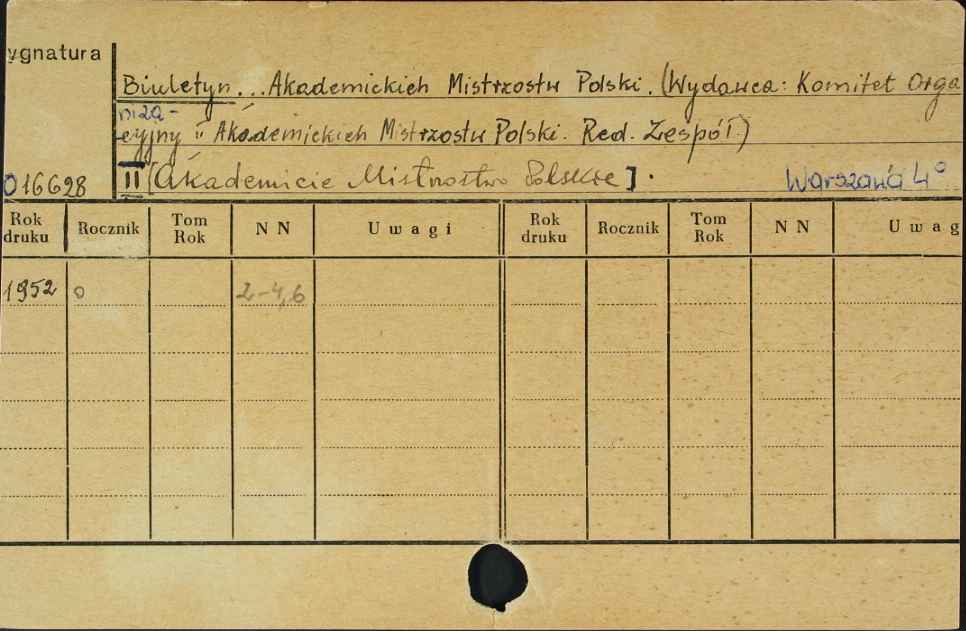 ygnatura
Biuletyn... Akademickich Mistrzostw Polski. (Wydawca: Komitet Orga
niza-
cyjny II Akademickich Mistrzostw Polski. Red. Zespół.)
016628 II [Akademicie Mistrostwo Polskie]. Warszawa 4°
Rok druku Rocznik Tom Rok N N Uwagi Rok druku Rocznik Tom Rok N N Uwag
1952 0 2-4,6